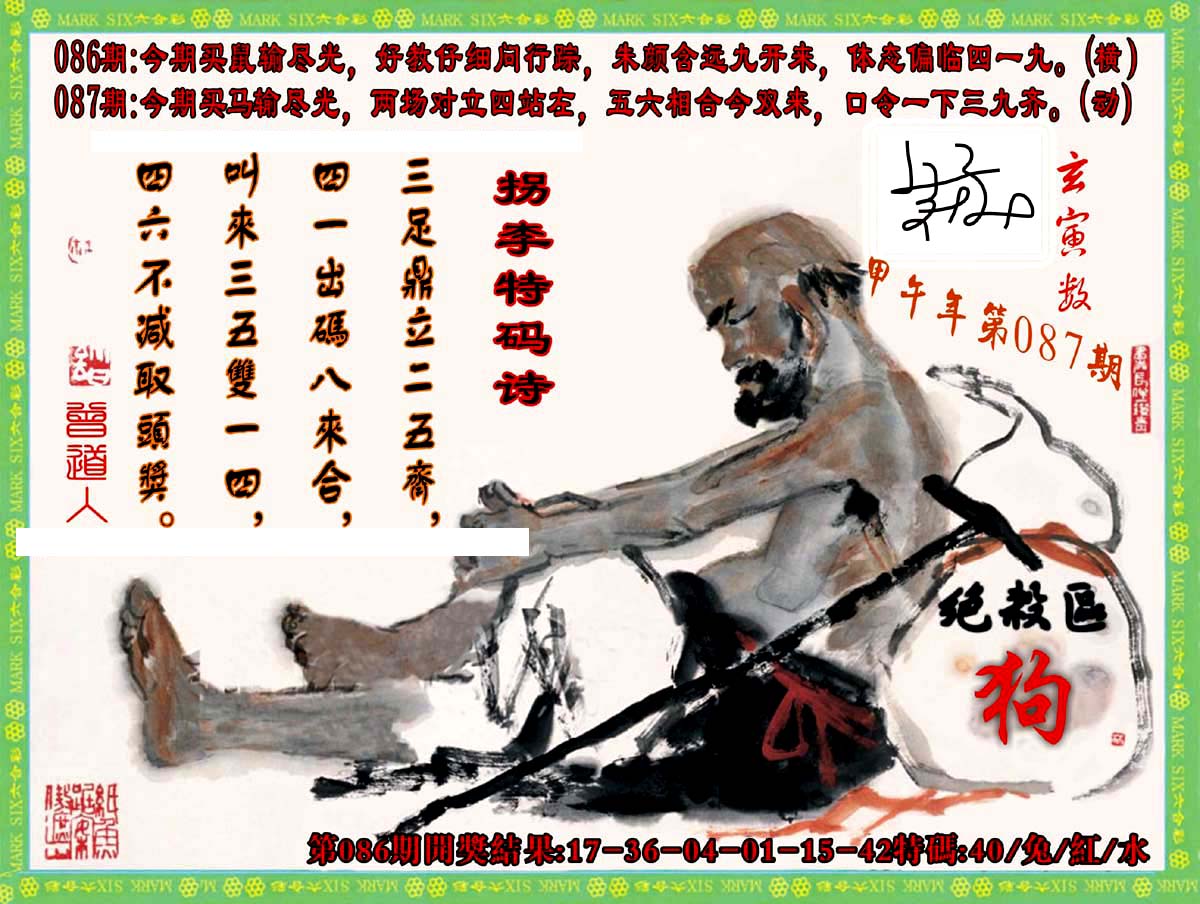 MARK SIX六合彩
086期:今期买鼠输尽光，好教仔细问行踪，朱颜含远九开来，体态偏临四一九。(横)
087期:今期买马输尽光，两场对立四站左，五六相合今双来，口令一下三九齐。(动)
玄寅数
甲午年第087期
拐李特码诗
三足鼎立二五齊，
四一出碼八來合，
叫來三五雙一四，
四六不減取頭獎。
曾道人
绝殺區
狗
第086期開獎結果:17-36-04-01-15-42特碼:40/兔/紅/水